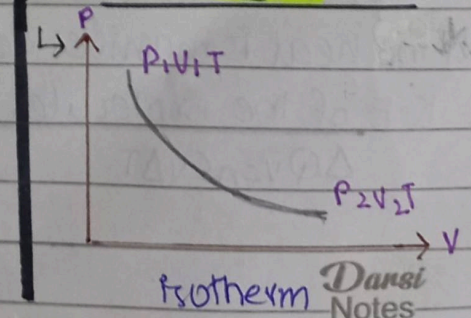 P
P₁V₁T
P₂V₂T
V
isotherm
Darsi
Notes